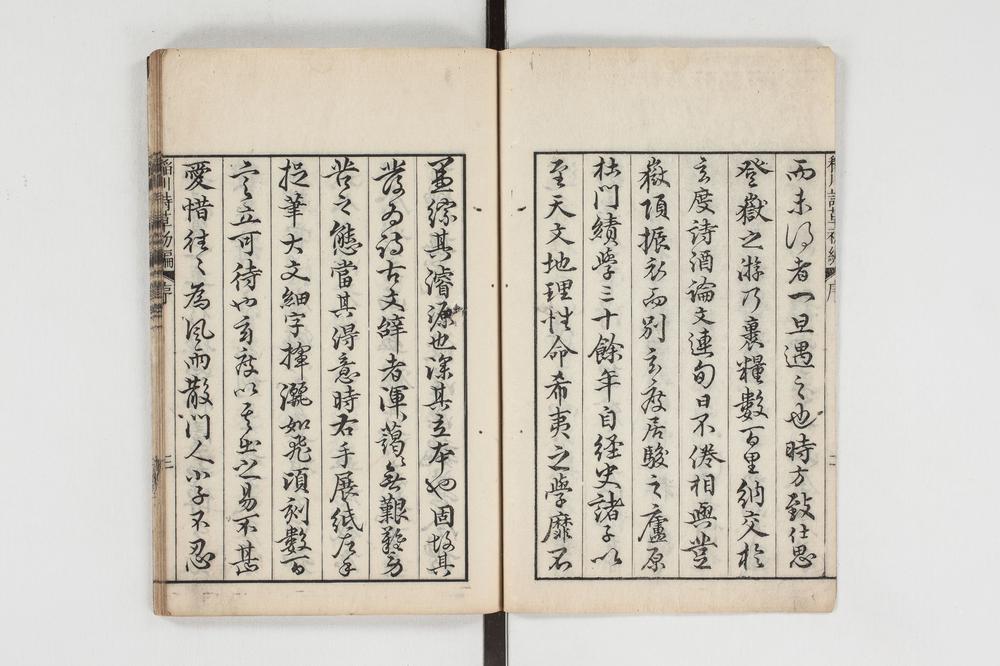 而未得者一旦遇之也時方致仕思
登嶽之游乃裹糧數百里納交於
玄度詩酒論文連旬日不倦相與登
嶽頂振衣而別玄度居駿之廬原
杜門績學三十餘年自経史諸子以
至天文地理性命希夷之學靡不
稻川詩草初編
序
二
畢綜其濬源也深其立本也固故其
發為詩古文辭者渾藹無艱難勞
苦之態當其得意時右手展紙左手
捉筆大文細字揮灑如飛頃刻數百
言立可待也玄度以其出之易不甚
愛惜往々為風雨散門人小子不忍
稻川詩草初編
序
三